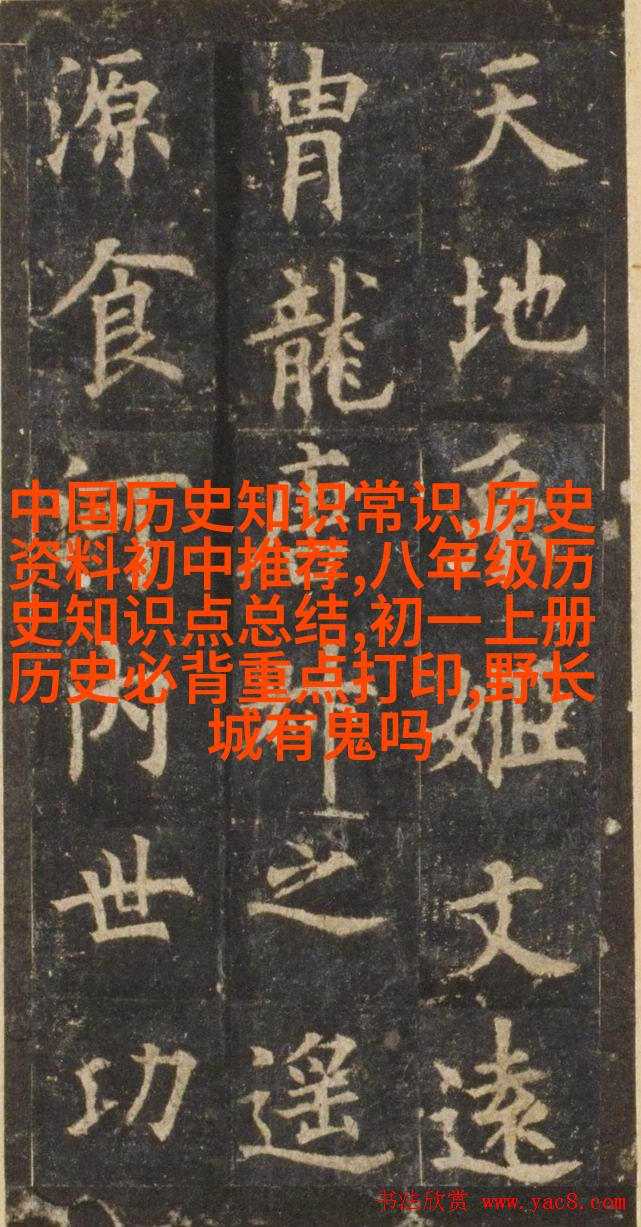 天地姬文遠
胄龍之遥
源食内世功
中国历史知识常识,历史
资料初中推荐,八年级历
史知识点总结,初一上册
历史必背重点打印,野长
城有鬼吗
书法欣赏 www.yac8.com